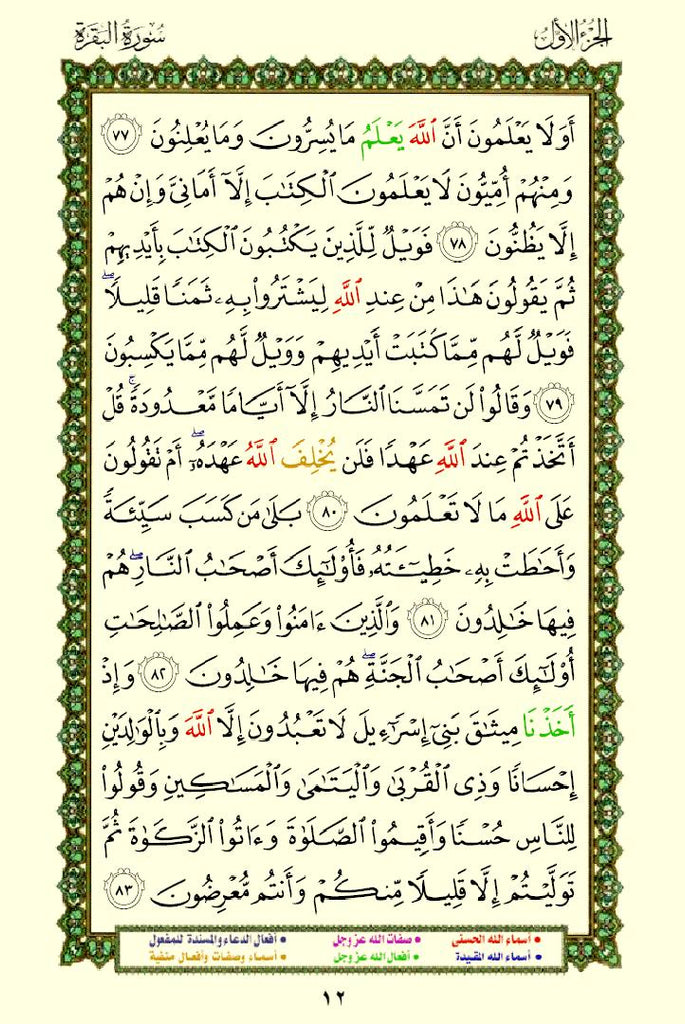 الجزء الأول
سورة البقرة
أَوَلَا يَعْلَمُونَ أَنَّ ٱللَّهَ يَعْلَمُ مَا يُسِرُّونَ وَمَا يُعْلِنُونَ ٧٧
وَمِنْهُمْ أُمِّيُّونَ لَا يَعْلَمُونَ ٱلْكِتَٰبَ إِلَّآ أَمَانِىَّ وَإِنْ هُمْ
إِلَّا يَظُنُّونَ ٧٨ فَوَيْلٌ لِّلَّذِينَ يَكْتُبُونَ ٱلْكِتَٰبَ بِأَيْدِيهِمْ
ثُمَّ يَقُولُونَ هَٰذَا مِنْ عِندِ ٱللَّهِ لِيَشْتَرُوا۟ بِهِۦ ثَمَنًا قَلِيلًا ۖ
فَوَيْلٌ لَّهُم مِّمَّا كَتَبَتْ أَيْدِيهِمْ وَوَيْلٌ لَّهُم مِّمَّا يَكْسِبُونَ
٧٩ وَقَالُوا۟ لَن تَمَسَّنَا ٱلنَّارُ إِلَّآ أَيَّامًا مَّعْدُودَةً ۚ قُلْ
أَتَّخَذْتُمْ عِندَ ٱللَّهِ عَهْدًا فَلَن يُخْلِفَ ٱللَّهُ عَهْدَهُۥٓ ۖ أَمْ تَقُولُونَ
عَلَى ٱللَّهِ مَا لَا تَعْلَمُونَ ٨٠ بَلَىٰ مَن كَسَبَ سَيِّئَةً
وَأَحَٰطَتْ بِهِۦ خَطِيٓـَٔتُهُۥ فَأُو۟لَٰٓئِكَ أَصْحَٰبُ ٱلنَّارِ ۖ هُمْ
فِيهَا خَٰلِدُونَ ٨١ وَٱلَّذِينَ ءَامَنُوا۟ وَعَمِلُوا۟ ٱلصَّٰلِحَٰتِ
أُو۟لَٰٓئِكَ أَصْحَٰبُ ٱلْجَنَّةِ ۖ هُمْ فِيهَا خَٰلِدُونَ ٨٢ وَإِذْ
أَخَذْنَا مِيثَٰقَ بَنِىٓ إِسْرَٰٓءِيلَ لَا تَعْبُدُونَ إِلَّا ٱللَّهَ وَبِٱلْوَٰلِدَيْنِ
إِحْسَانًا وَذِى ٱلْقُرْبَىٰ وَٱلْيَتَٰمَىٰ وَٱلْمَسَٰكِينِ وَقُولُوا۟
لِلنَّاسِ حُسْنًا وَأَقِيمُوا۟ ٱلصَّلَوٰةَ وَءَاتُوا۟ ٱلزَّكَوٰةَ ثُمَّ
تَوَلَّيْتُمْ إِلَّا قَلِيلًا مِّنكُمْ وَأَنتُم مُّعْرِضُونَ ٨٣
• أسماء الله الحسنى • صفات الله عز وجل • أفعال الدعاء والمسندة للمفعول
• أسماء الله المقيدة • أفعال الله عز وجل • أسماء وصفات وأفعال منفية
١٢